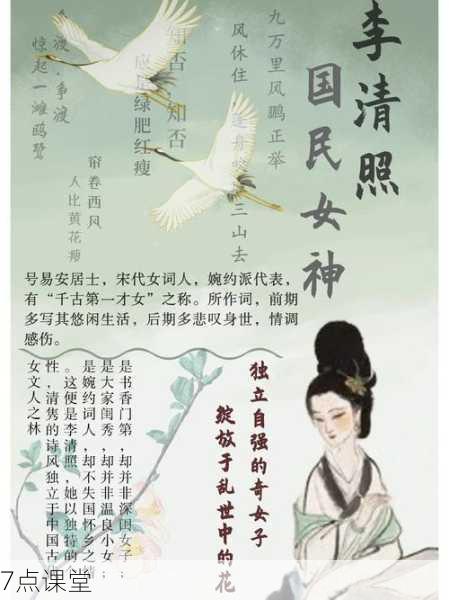 李清照
国民女神
九万里风鹏正举
风休住，蓬舟吹取三山去
知否，知否
应是绿肥红瘦
争渡，争渡
惊起一滩鸥鹭
帘卷西风
人比黄花瘦
号易安居士，宋代女词人，婉约派代表，
有“千古第一才女”之称。所作词，前期
多写其悠闲生活，后期多悲叹身世，情调
感伤。
独立自强的奇女子
绽放于乱世中的花
是书香门第，却并非深闺女子；
是大家闺秀，却并非温良小女；
是婉约词人，却不失国怀乡之情
。这便是李清照，她以独特的个
性，清隽的诗风，独立于中国古
女文人之林
7点课堂